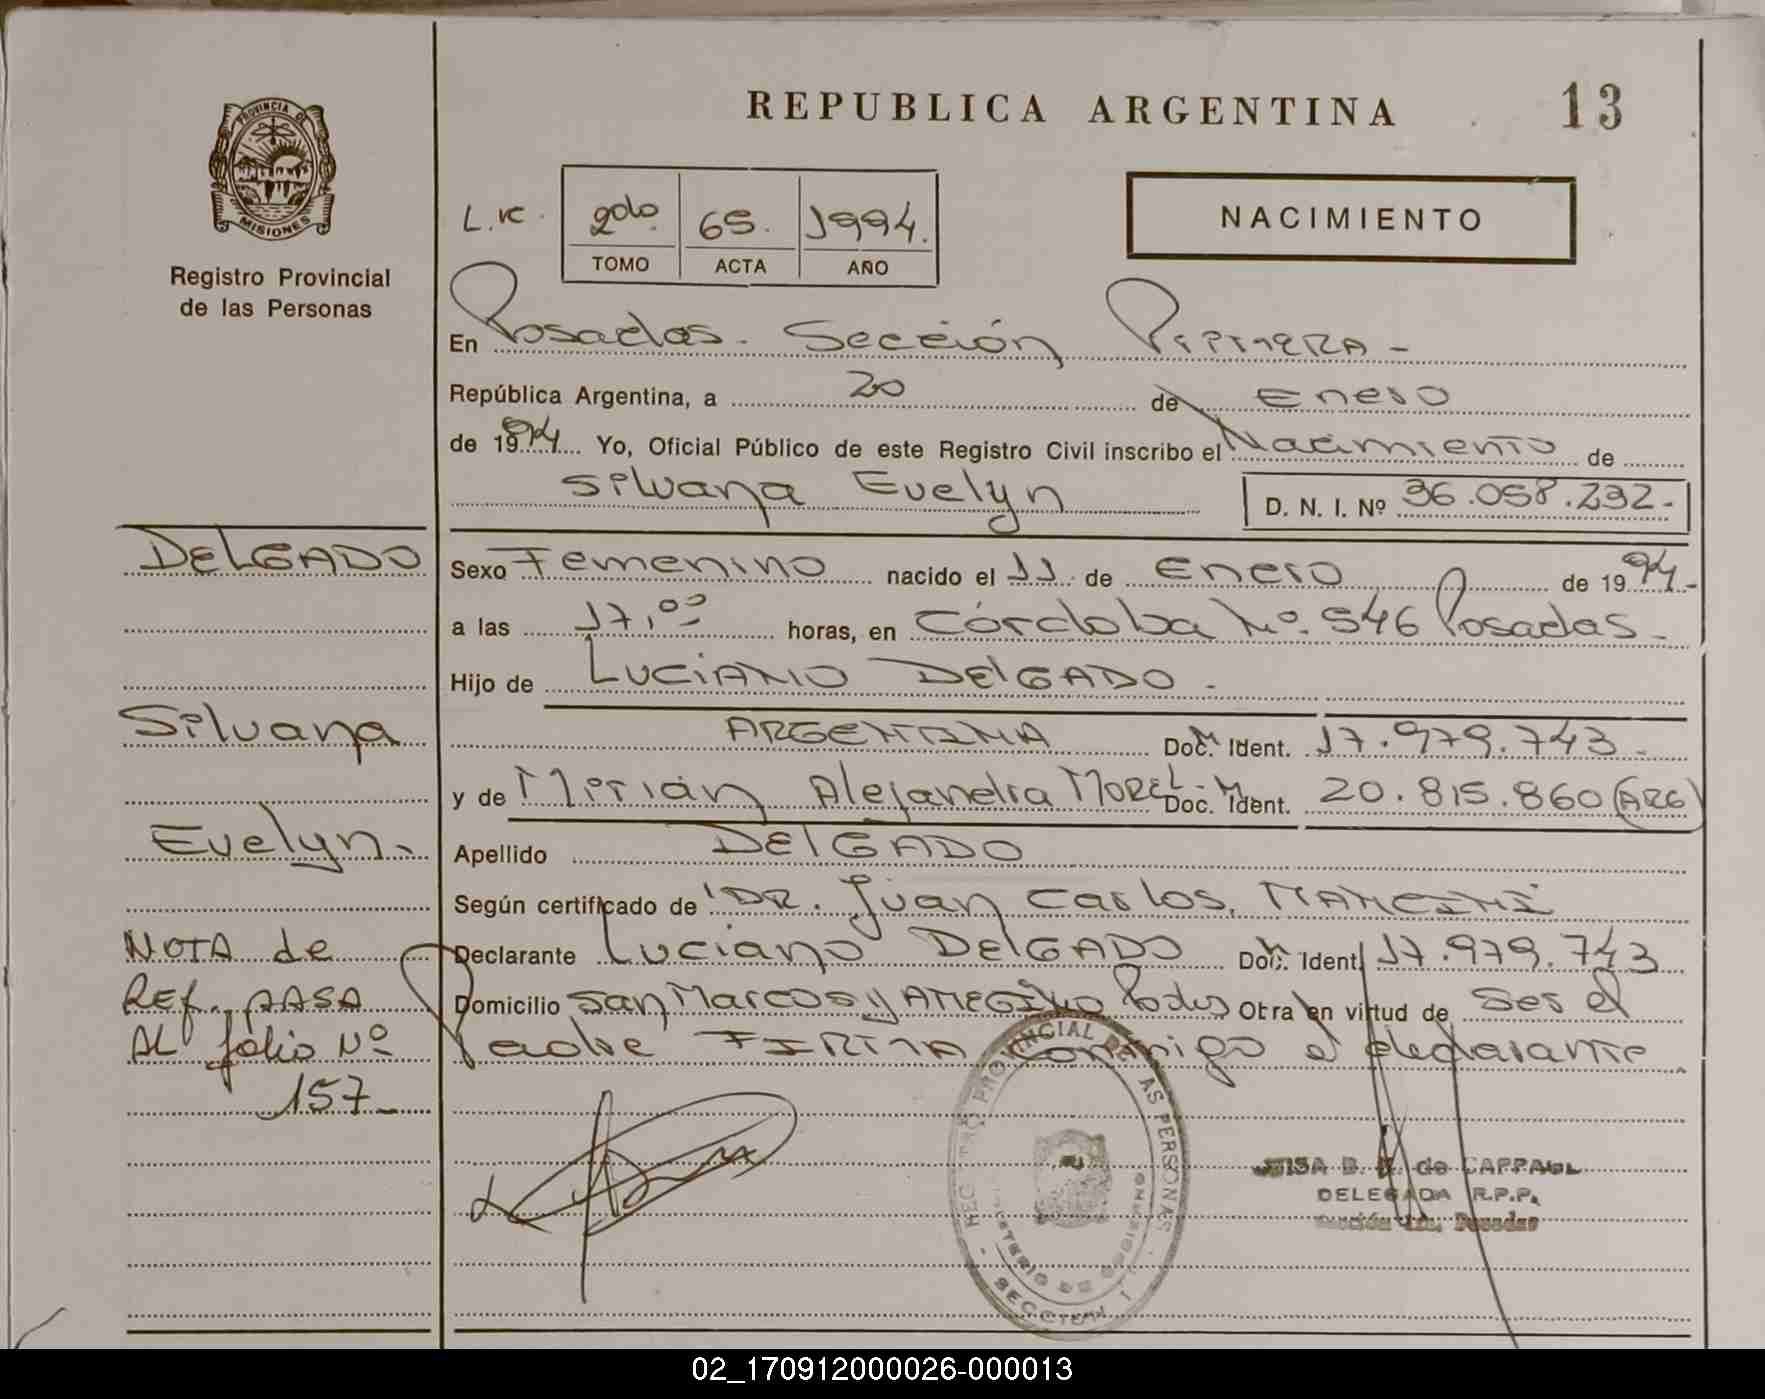 REPUBLICA ARGENTINA
13
PROVINCIA DE
MISIONES
Registro Provincial
de las Personas
2do. 65. 1994.
TOMO ACTA AÑO
NACIMIENTO
En Posadas. Sección Primera -
República Argentina, a 20 de Enero
de 1994 Yo, Oficial Público de este Registro Civil inscribo el Nacimiento de
Silvana Evelyn D. N. I. Nº 36.058.232.-
DELGADO
Sexo Femenino nacido el 11 de Enero de 1994.-
a las 17,00 horas, en Córdoba Nº. 546 Posadas.
Hijo de LUCIANO DElGADO.
Silvana
ARGENTINA Doc. Ident. 17.979.743.
y de Mirian Alejandra MOREL. Doc. Ident. 20.815.860 (ARG)
Evelyn.
Apellido DElGADO
Según certificado de DR. Juan Carlos. MANCINI
NOTA de
Declarante Luciano DElGADO Doc. Ident. 17.979.743
REf. PASA
Domicilio San Marcos y Otra en virtud de Ser el
AL folio Nº
Padre FIRMA Conmigo el declarante
157-
REGISTRO PROVINCIAL DE LAS PERSONAS
MINISTERIO DE GOBIERNO
SECCION
de CAPPAUL
DELEGADA R.P.P.
Sección 1ra. Posadas
02_170912000026-000013